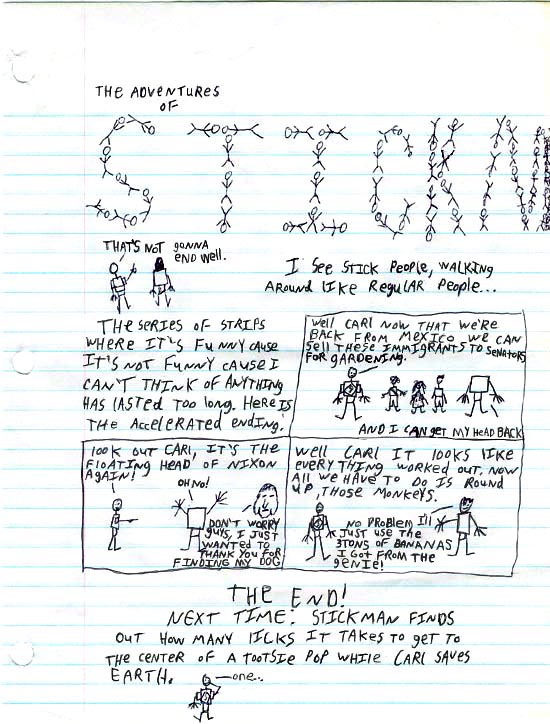 THE ADVENTURES
OF
STICKMAN
THAT'S NOT gonna
END Well.
I SEE STICK PEOPLE, WALKING
AROUND lIKE REGULAR PEOPLE...
THE SERIES OF STRIPS
WHERE IT'S FUNNY CAUSE
IT'S NOT FUNNY CAUSE I
CAN'T THINK OF ANYTHING
HAS lASTED TOO LONG. HERE IS
THE ACCElERATED ENDING!
Well CARl NOW THAT WE'RE
BACK FROM MEXICO WE CAN
Sell THESE IMMIGRANTS TO SENATORS
FOR GARDENING.
AND I CAN GET MY HEAD BACK
lOOK OUT CARl, IT'S THE
FlOATING HEAD OF NIXON
AGAIN!
OH NO!
DON'T WORRY
guys, I JUST
WANTED TO
THANK YOU FOR
FINDING MY DOG
WEll CARl IT lOOKS lIKE
EVERYTHING WORKED OUT. NOW
All WE HAVE TO DO IS ROUND
UP THOSE MONKEYS.
NO PROBlEM I'll
JUST USE THE
3TONS OF BANANAS
I GOT FROM THE
genIE!
THE END!
NEXT TIME: STICKMAN FINDS
OUT HOW MANY lICKS IT TAKES TO GET TO
THE CENTER OF A TOOTSIE POP WHILE CARl SAVES
EARTH.
one..